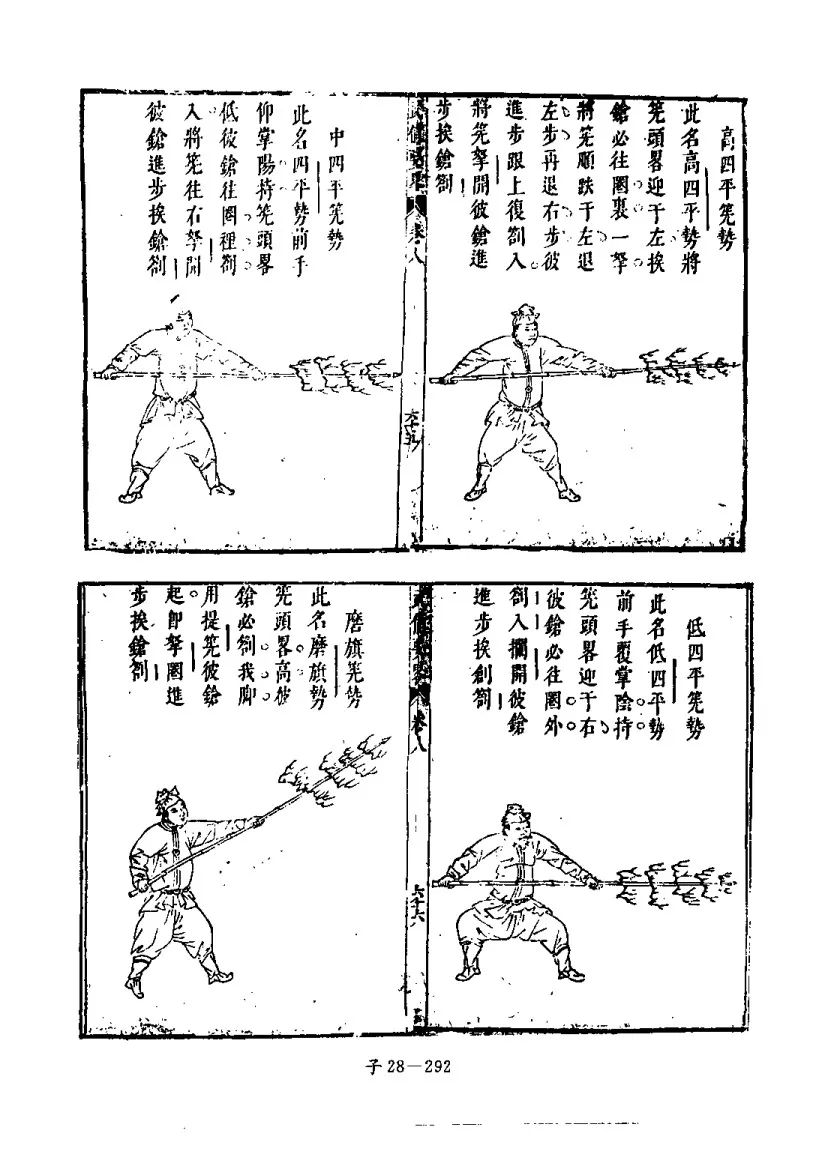 高四平筅勢
此名高四平勢將
筅頭畧迎于左挨
鎗必往圈裏一拏
將筅順跌于左退
左步再退右步彼
進步跟上復劄入
將筅拏開彼鎗進
步挨鎗劄
武備要畧
卷八
六十五
中四平筅勢
此名四平勢前手
仰掌陽持筅頭畧
低彼鎗往圈裡劄
入將筅往右拏開
彼鎗進步挨鎗劄
低四平筅勢
此名低四平勢
前手覆掌陰持
筅頭畧迎于右
彼鎗必往圈外
劄入攔開彼鎗
進步挨創劄
武備要畧
卷八
六十六
磨旗筅勢
此名磨旗勢
筅頭畧高彼
鎗必劄我脚
用提筅彼鎗
起即拏圈進
步挨鎗劄
子28－292